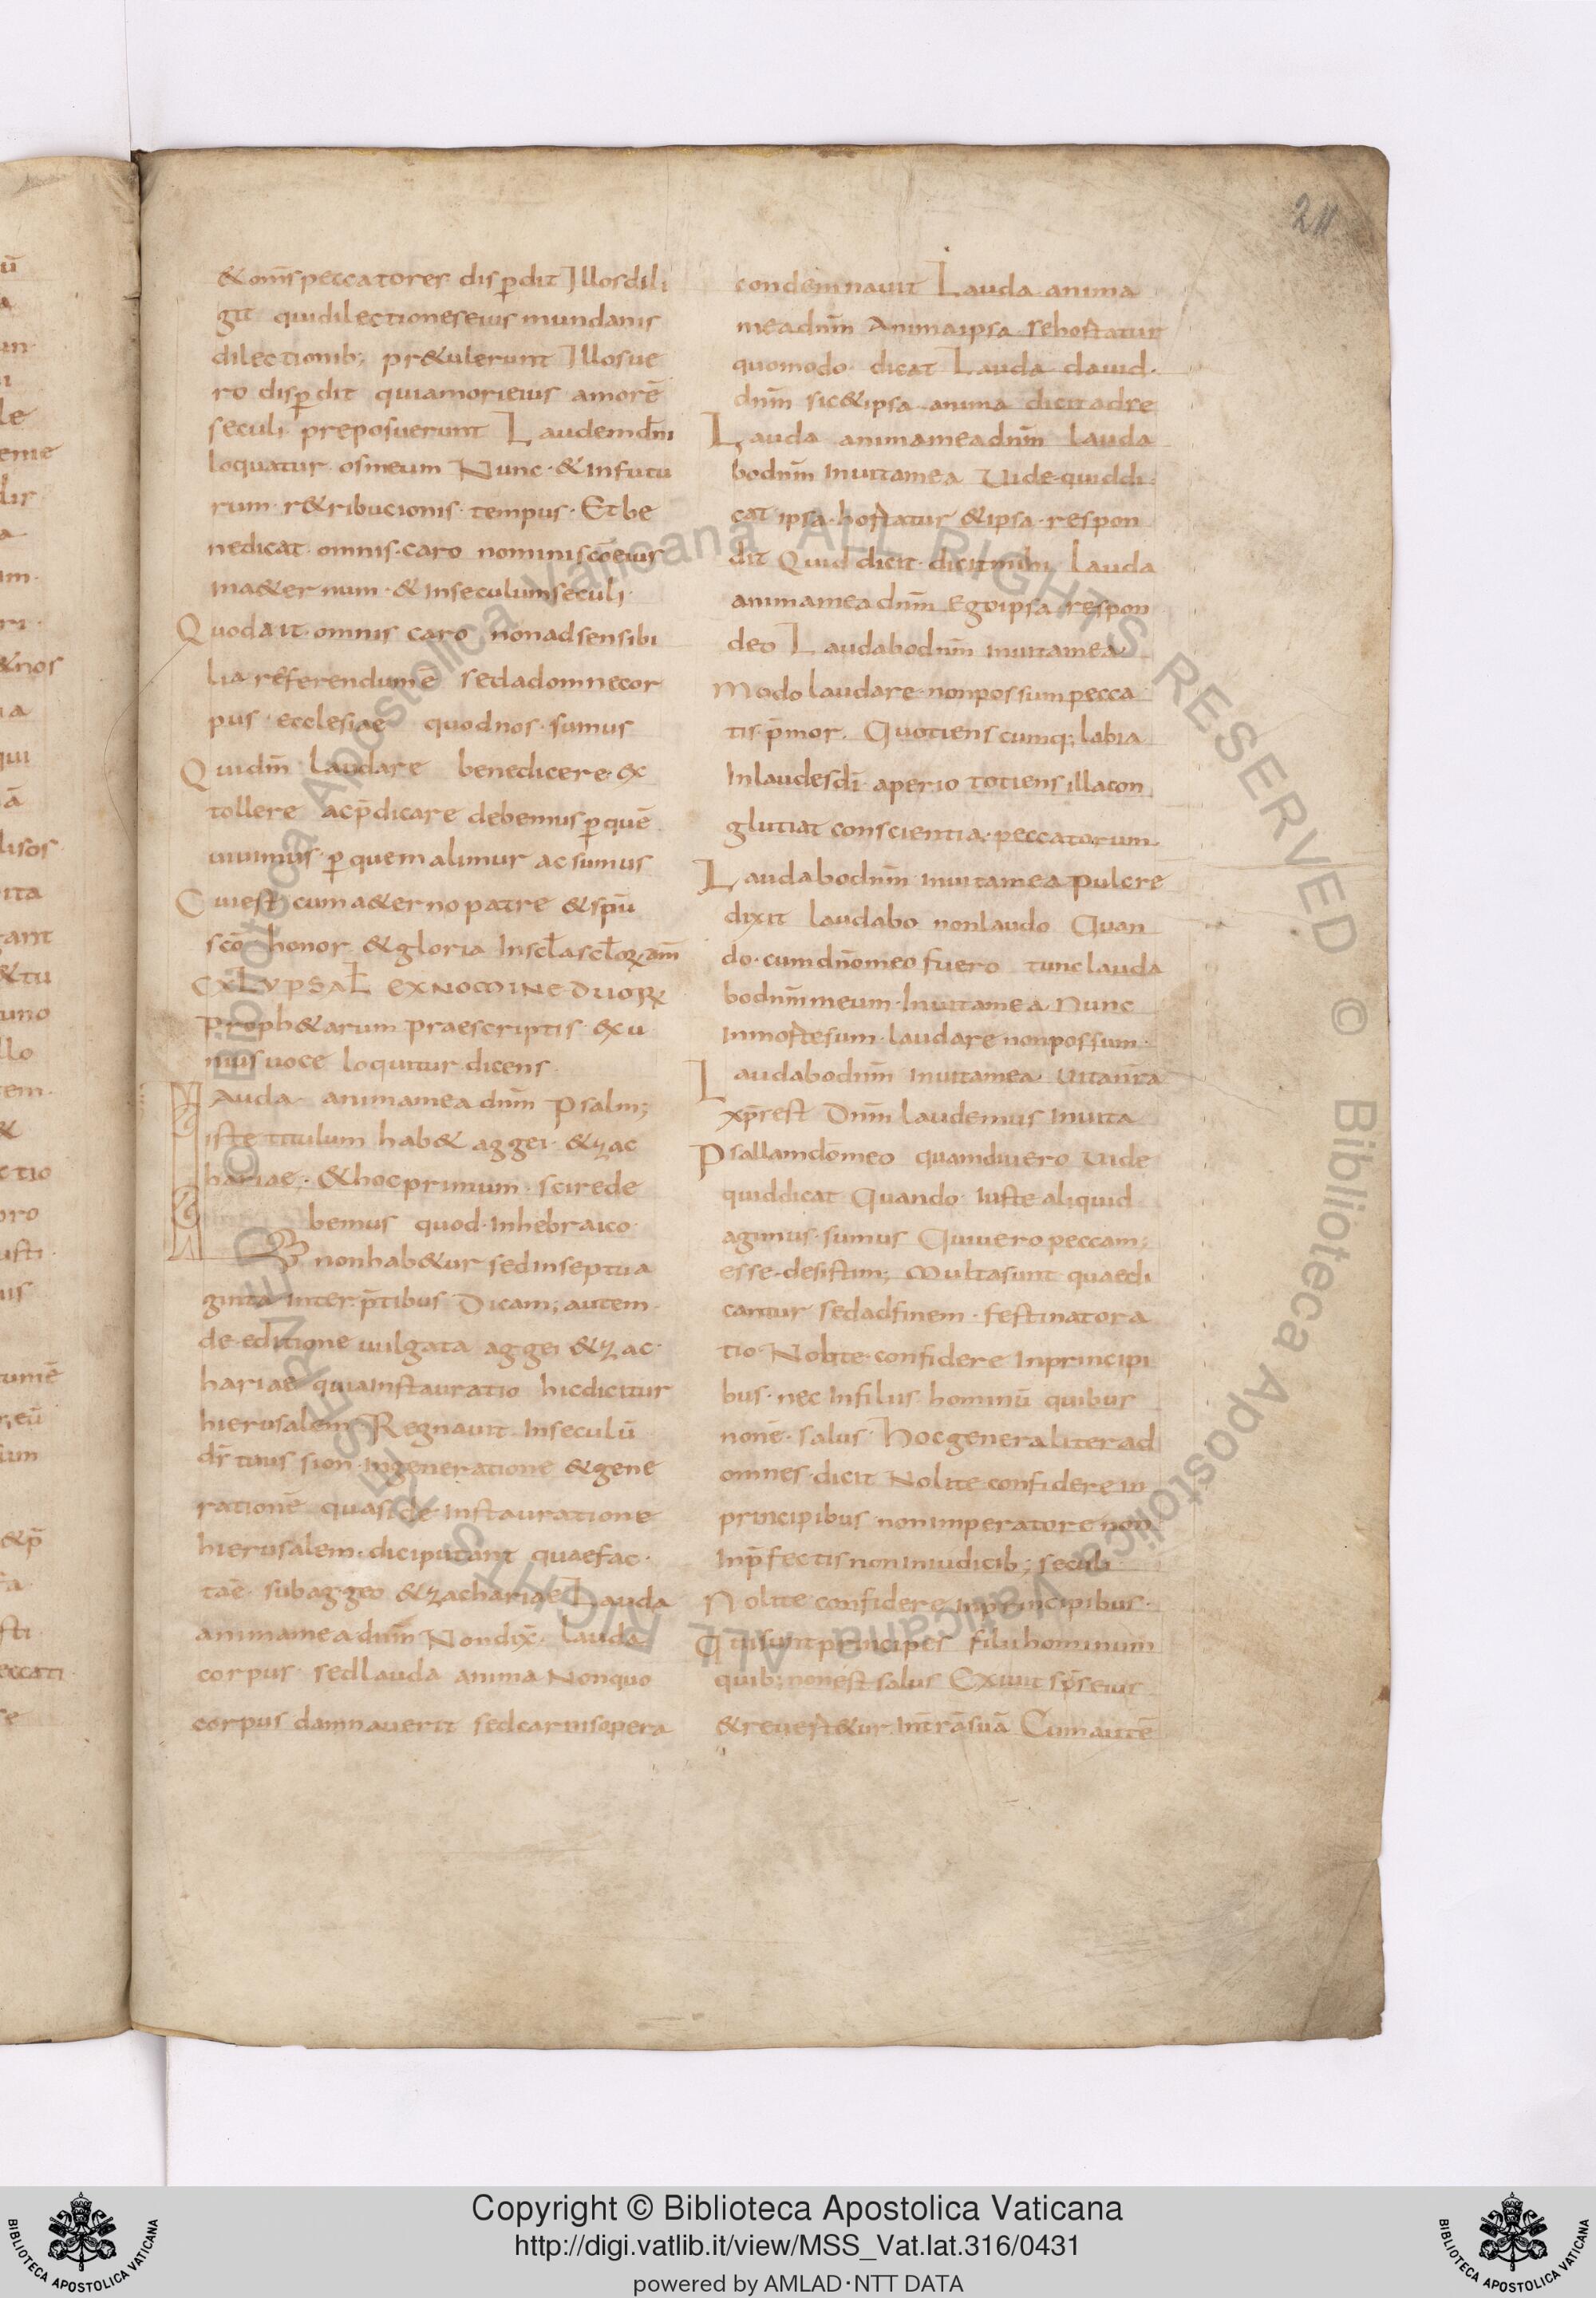 211
& om̄s peccatores disꝑdit Illos dili
git qui dilectiones eius mundanis
dilectionib; pr&ulerunt Illos ue
ro disꝑdit qui amori eius amorē
seculi preposuerunt Laudem dn̄i
loquatur os meum Nunc & in futu
rum r&ribucionis tempus Et be
nedicat omnis caro nomini sc̄o eius
in a&ernum & in seculum seculi
Quod ait omnis caro non ad sensibi
lia referendum ē sed ad omne cor
pus ecclesiae quod nos sumus
Qui dn̄m laudare benedicere ex
tollere ac p̄dicare debemus ꝑ quē
uiuimus ꝑ quem alimur ac sumus
Cui est cum a&erno patre & sp̄u
sc̄o honor & gloria In scl̄a scl̄oꝝ am̄
CXLV PSAL̄ EX NOMINE DUOꝜ
Proph&arum praescriptis ex u
nius uoce loquitur dicens
LAuda anima mea dn̄m Psalm;
iste titulum hab& aggei & zac
hariae; & hoc primum scire de
bemus quod in hebraico
non hab&ur sed in septua
ginta interp̄tibus Dicam; autem
de editione uulgata aggei & zac
hariae quia instauratio hic dicitur
hierusalem Regnauit in seculū
ds̄ tuus sion in generatione & gene
rationē quasi de instauratione
hierusalem dici putant quae fac
tae sub aggeo & zachariae Lauda
anima mea dn̄m Non dix̄ lauda
corpus sed lauda anima Non quo
corpus damnauerit sed carnis opera
condemnauit Lauda anima
mea dn̄m Anima ipsa se hortatur
quomodo dicat Lauda dauid
dn̄m sic & ipsa anima dicit ad se
Lauda anima mea dn̄m lauda
bo dn̄m in uita mea Uide quid di
cat ipsa hortatur & ipsa respon
dit Quid dicit dicit mihi Lauda
anima mea dn̄m Ego ipsa respon
deo Laudabo dn̄m in uita mea
Modo laudare non possum pecca
tis p̄mor Quotienscumq; labia
in laudes dī aperio totiens illa con
glutiat conscientia peccatorum
Laudabo dn̄m in uita mea Pulcre
dixit laudabo non laudo Quan
do cum dn̄o meo fuero tunc lauda
bo dn̄m meum In uita mea Nunc
in morte sum laudare non possum
Laudabo dn̄m in uita mea Uita nr̄a
xp̄s est Dn̄m laudemus in uita
Psallam dō meo quamdiu ero Uide
quid dicat Quando iuste aliquid
agimus sumus Qui uero peccam;
esse desistim; Multa sunt quae di
cantur sed ad finem festinat ora
tio Nolite confidere in principi
bus nec in filiis hominū quibus
non ē salus Hoc generaliter ad
omnes dicit Nolite confidere in
principibus non imperatore non
in p̄fectis non in iudicib; seculi
Nolite confidere in principibus
Qui sunt principes filii hominum
quib; non est salus Exiuit sp̄s eius
& reuert&ur in tr̄ā suā Cum autē
Copyright © Biblioteca Apostolica Vaticana
http://digi.vatlib.it/view/MSS_Vat.lat.316/0431
powered by AMLAD·NTT DATA